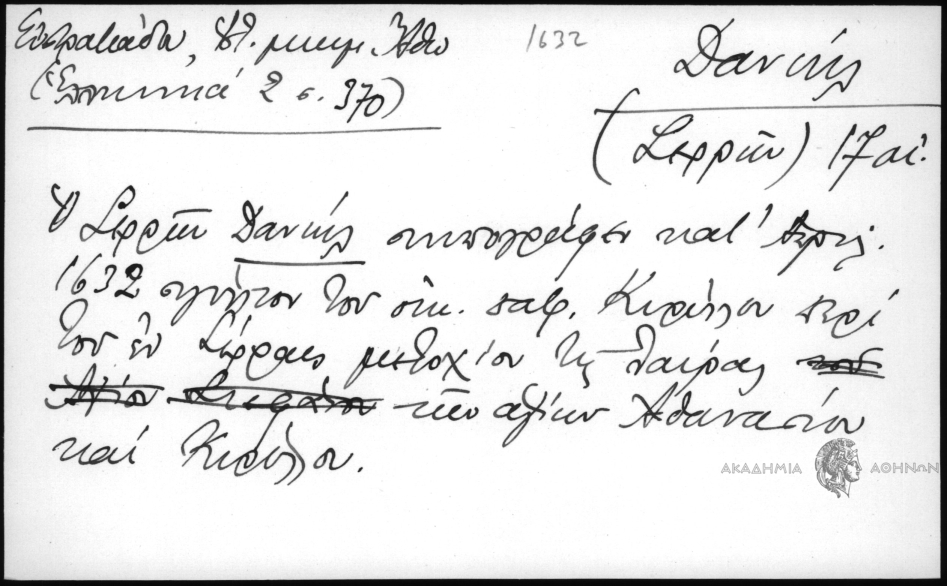 Ευστρατιάδου, Ἁγ. μνημ. Ἄθω
(Ἑλληνικά 2 σ. 370)
1632
Δανιήλ
(Σερρῶν) 17 αἰ.
Ὁ Σερρῶν Δανιήλ συνυπογράφει κατ' Ἀπρίλ.
1632 σιγίλλιον τοῦ οἰκ. πατρ. Κυρίλλου περί
τοῦ ἐν Σέρραις μετοχίου τῆς Λαύρας τοῦ
Ἁγίου Στεφάνου τῶν ἁγίων Ἀθανασίου
καί Κυρίλλου.
ΑΚΑΔΗΜΙΑ ΑΘΗΝΩΝ